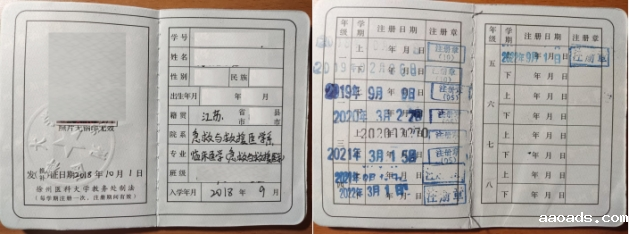 照片无钢印无效
发证日期2018年10月1日
徐州医科大学教务处制法
(每学期注册一次,注册期间有效)
学号
姓名
性别 民族
出生年月 年 月 日
籍贯 江苏 省 市 县 市
院系 急救与救援医学系
专业 临床医学(急救与救援医学)
班级
入学年月 2018 年 9 月
年级 学期 注册日期 注册章
一 上 年 月 日 注册章
下
2019年9月9日 注册章
(05)
2020年3月2日
2021年3月15日 注册章
(05)
2022年3月1日 注册章
年级 学期 注册日期 注册章
五 上 2022年9月1日 注册章
下 年 月 日
六 上 年 月 日
下 年 月 日
七 上 年 月 日
下 年 月 日
八 上 年 月 日
下 年 月 日
www.aaoads.com